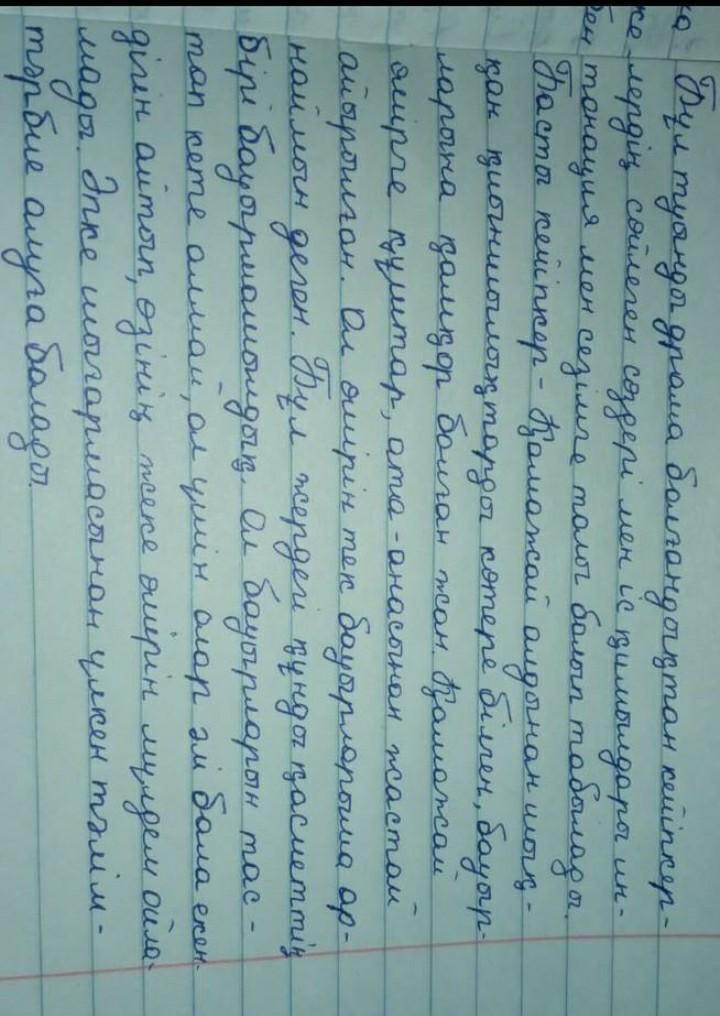 ка
Бұл туынды драма болғандықтан кейіпкер-
ке лердің сөйлеген сөздері мен іс қимылдары ин-
бен тонация мен сезімге толы болып табылады.
Басты кейіпкер - Қамажай алдынан шық-
қан қиыншылықтарды көтере білген, бауыр-
ларына қамқор болған жан. Қамажай
өмірге құштар, ата-анасынан жастай
айырылған. Ол өмірін тек бауырларыма ар-
наймын деген. Бұл жердегі құнды қасиеттің
бірі бауырмашылдық. Ол бауырларын тас-
тап кете алмай, ол үшін олар әлі бала екен-
дігін айтып, өзінің жеке өмірін мүлдем ойла-
мады. Әпке шығармасынан үлкен тәлім-
тәрбие алуға болады.